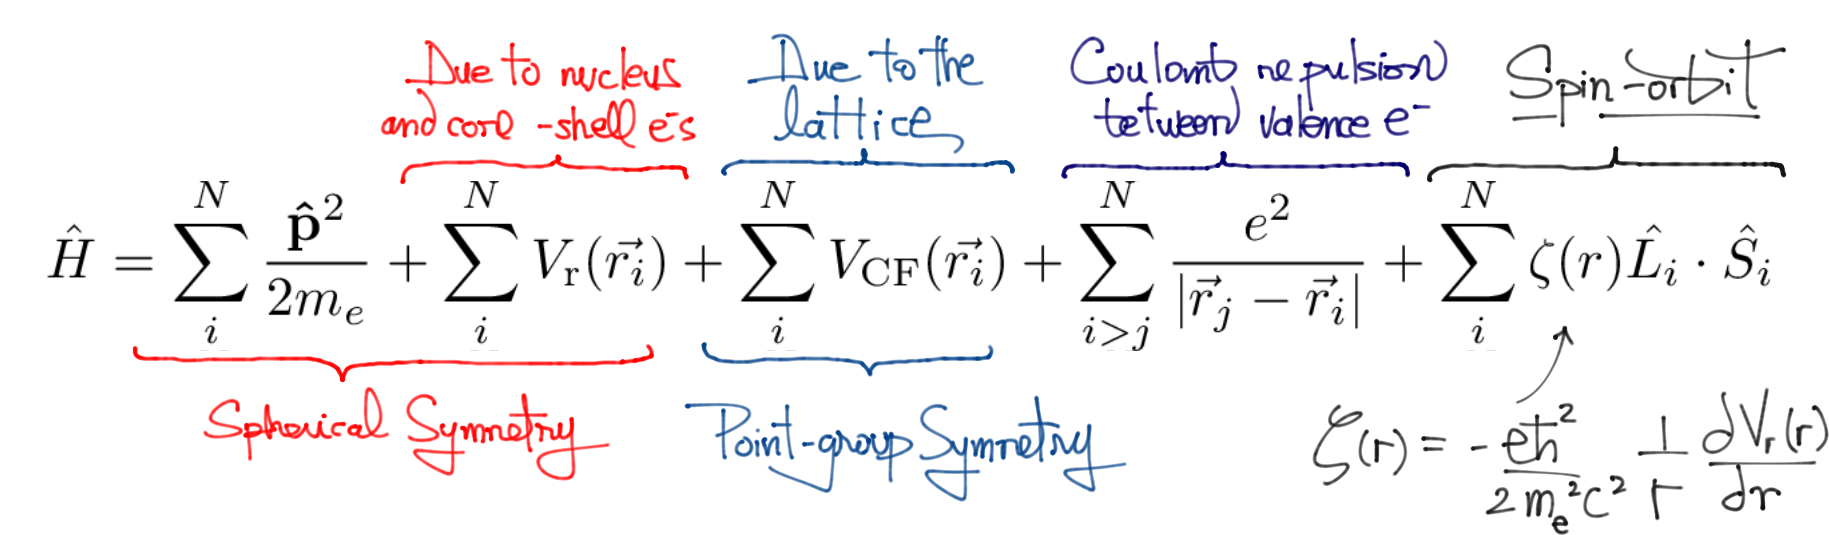 Due to nucleus
and core-shell e⁻s
Due to the
lattice
Coulomb repulsion
tetween valence e⁻
Spin-orbit
Ĥ = ∑_i^N p̂²/2m_e + ∑_i^N V_r(r⃗_i) + ∑_i^N V_CF(r⃗_i) + ∑_{i>j}^N e²/|r⃗_j − r⃗_i| + ∑_i^N ζ(r)L̂_i · Ŝ_i
Spherical Symmetry
Point-group Symmetry
ζ(r) = - eħ²/2m_e²c² 1/r dV_r(r)/dr